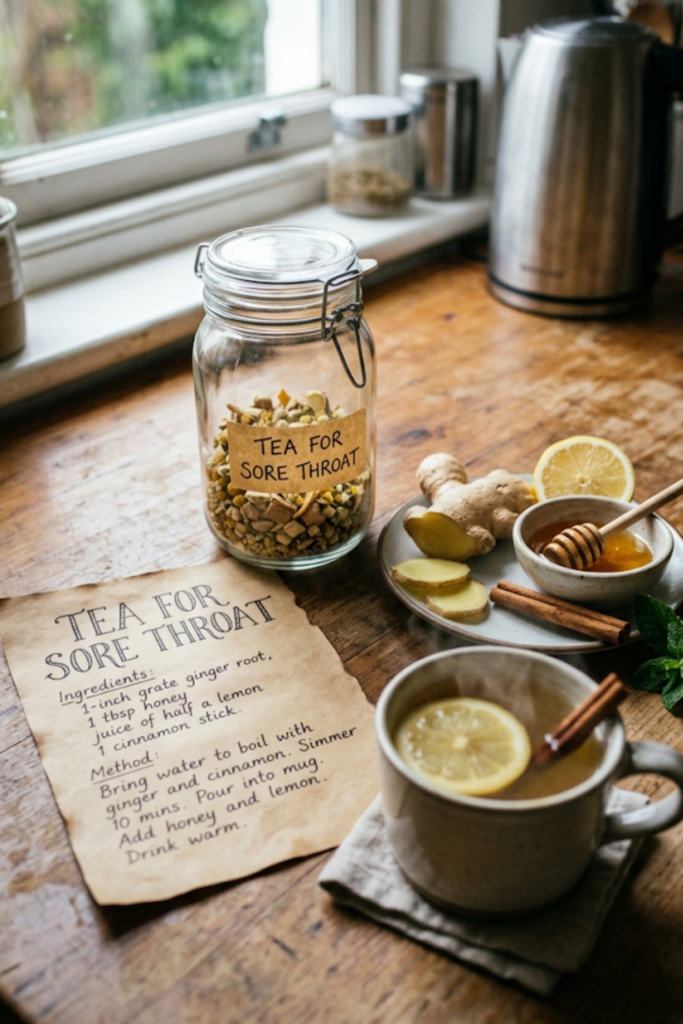 TEA FOR
SORE THROAT
TEA FOR
SORE THROAT
Ingredients:
1-inch grate ginger root,
1 tbsp honey
juice of half a lemon
1 cinnamon stick.
Method:
Bring water to boil with
ginger and cinnamon. Simmer
10 mins. Pour into mug.
Add honey and lemon.
Drink warm.